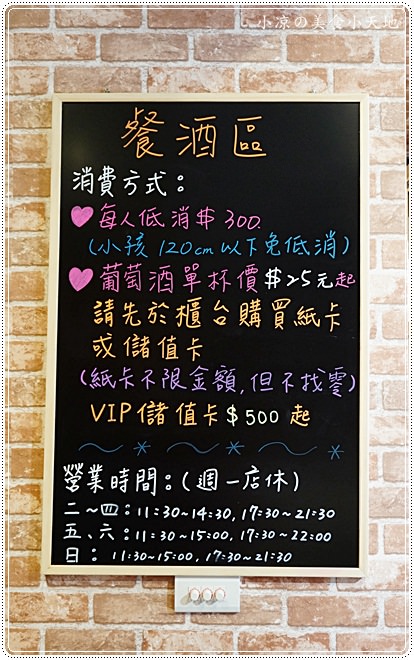 小凉の美食小天地
餐酒區
消費方式：
♥每人低消$300.
(小孩120cm以下免低消)
♥葡萄酒單杯價$25元起
請先於櫃台購買紙卡
或儲值卡
(紙卡不限金額,但不找零)
VIP儲值卡$500起
營業時間：(週一店休)
二~四：11:30~14:30, 17:30~21:30
五、六：11:30~15:00, 17:30~22:00
日： 11:30~15:00, 17:30~21:30